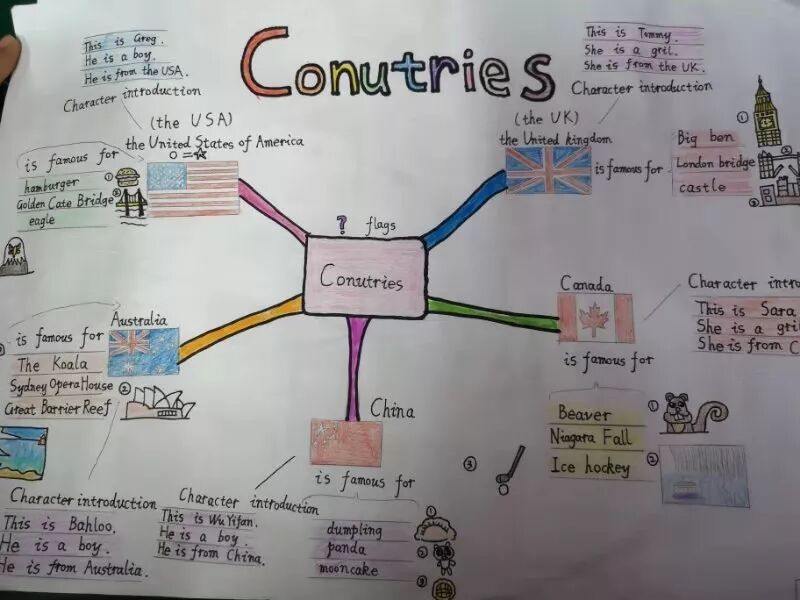 Conutries
This is Greg.
He is a boy.
He is from the USA.
Character introduction
(the USA)
the United States of America
is famous for
hamburger
Golden Cate Bridge
eagle
①
②
This is Tommy.
She is a gril.
She is from the UK.
Character introduction
(the UK)
the United kingdom
is famous for
Big ben
London bridge
castle
①
②
③
? flags
Conutries
Australia
is famous for
The Koala
Sydney Opera House
Great Barrier Reef
②
Character introduction
This is Bahloo.
He is a boy.
He is from Australia.
Canada
Character intro
This is Sara
She is a gril
She is from C
is famous for
Beaver
Niagara Fall
Ice hockey
①
②
③
China
is famous for
dumpling
panda
mooncake
①
②
③
Character introduction
This is Wu Yifan.
He is a boy.
He is from China.